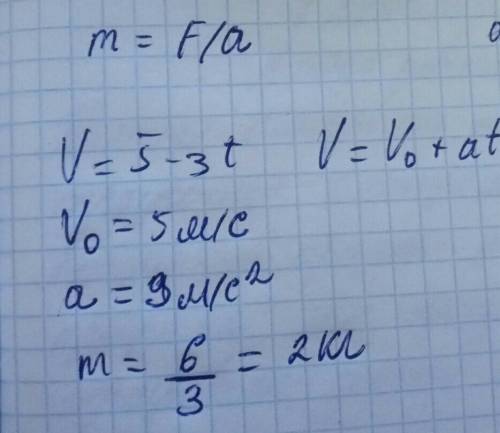 m = F/a
V = 5 - 3t V = V₀ + at
V₀ = 5 м/с
a = 3 м/с²
m = 6/3 = 2 кг